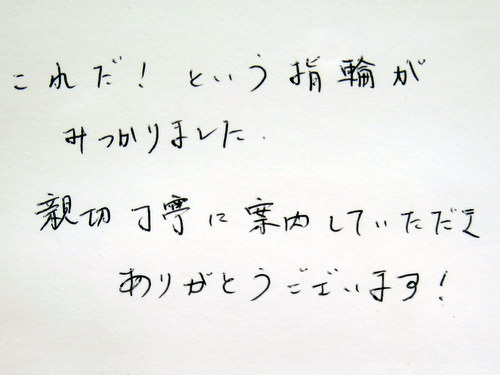 これだ！という指輪が
みつかりました.
親切丁寧に案内していただき
ありがとうございます！